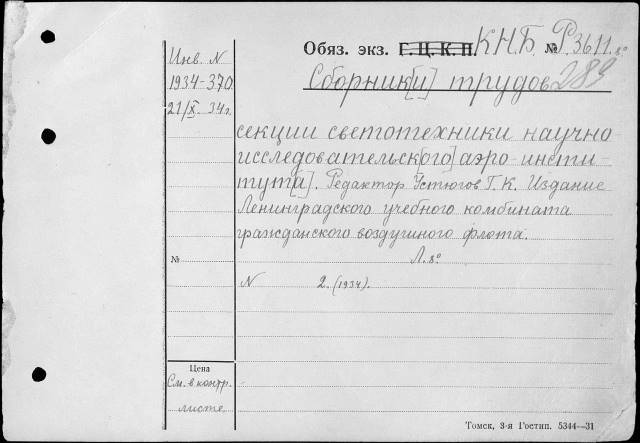 Обяз. экз. Г. Ц. К. П. К.Н.Б. № Р. 3611. 8°
Инв. N
1934-370
21/X. 34г.
Сборник[и] трудов 289
секции светотехники научно-
исследовательск[ого] аэро-инсти-
тут[а]. Редактор Устюгов Г. К. Издание
Ленинградского учебного комбината
гражданского воздушного флота.
№ Л. 8°
N 2. (1934).
Цена
См. в контр.
листе
Томск, 3-я Гостип. 5344—31